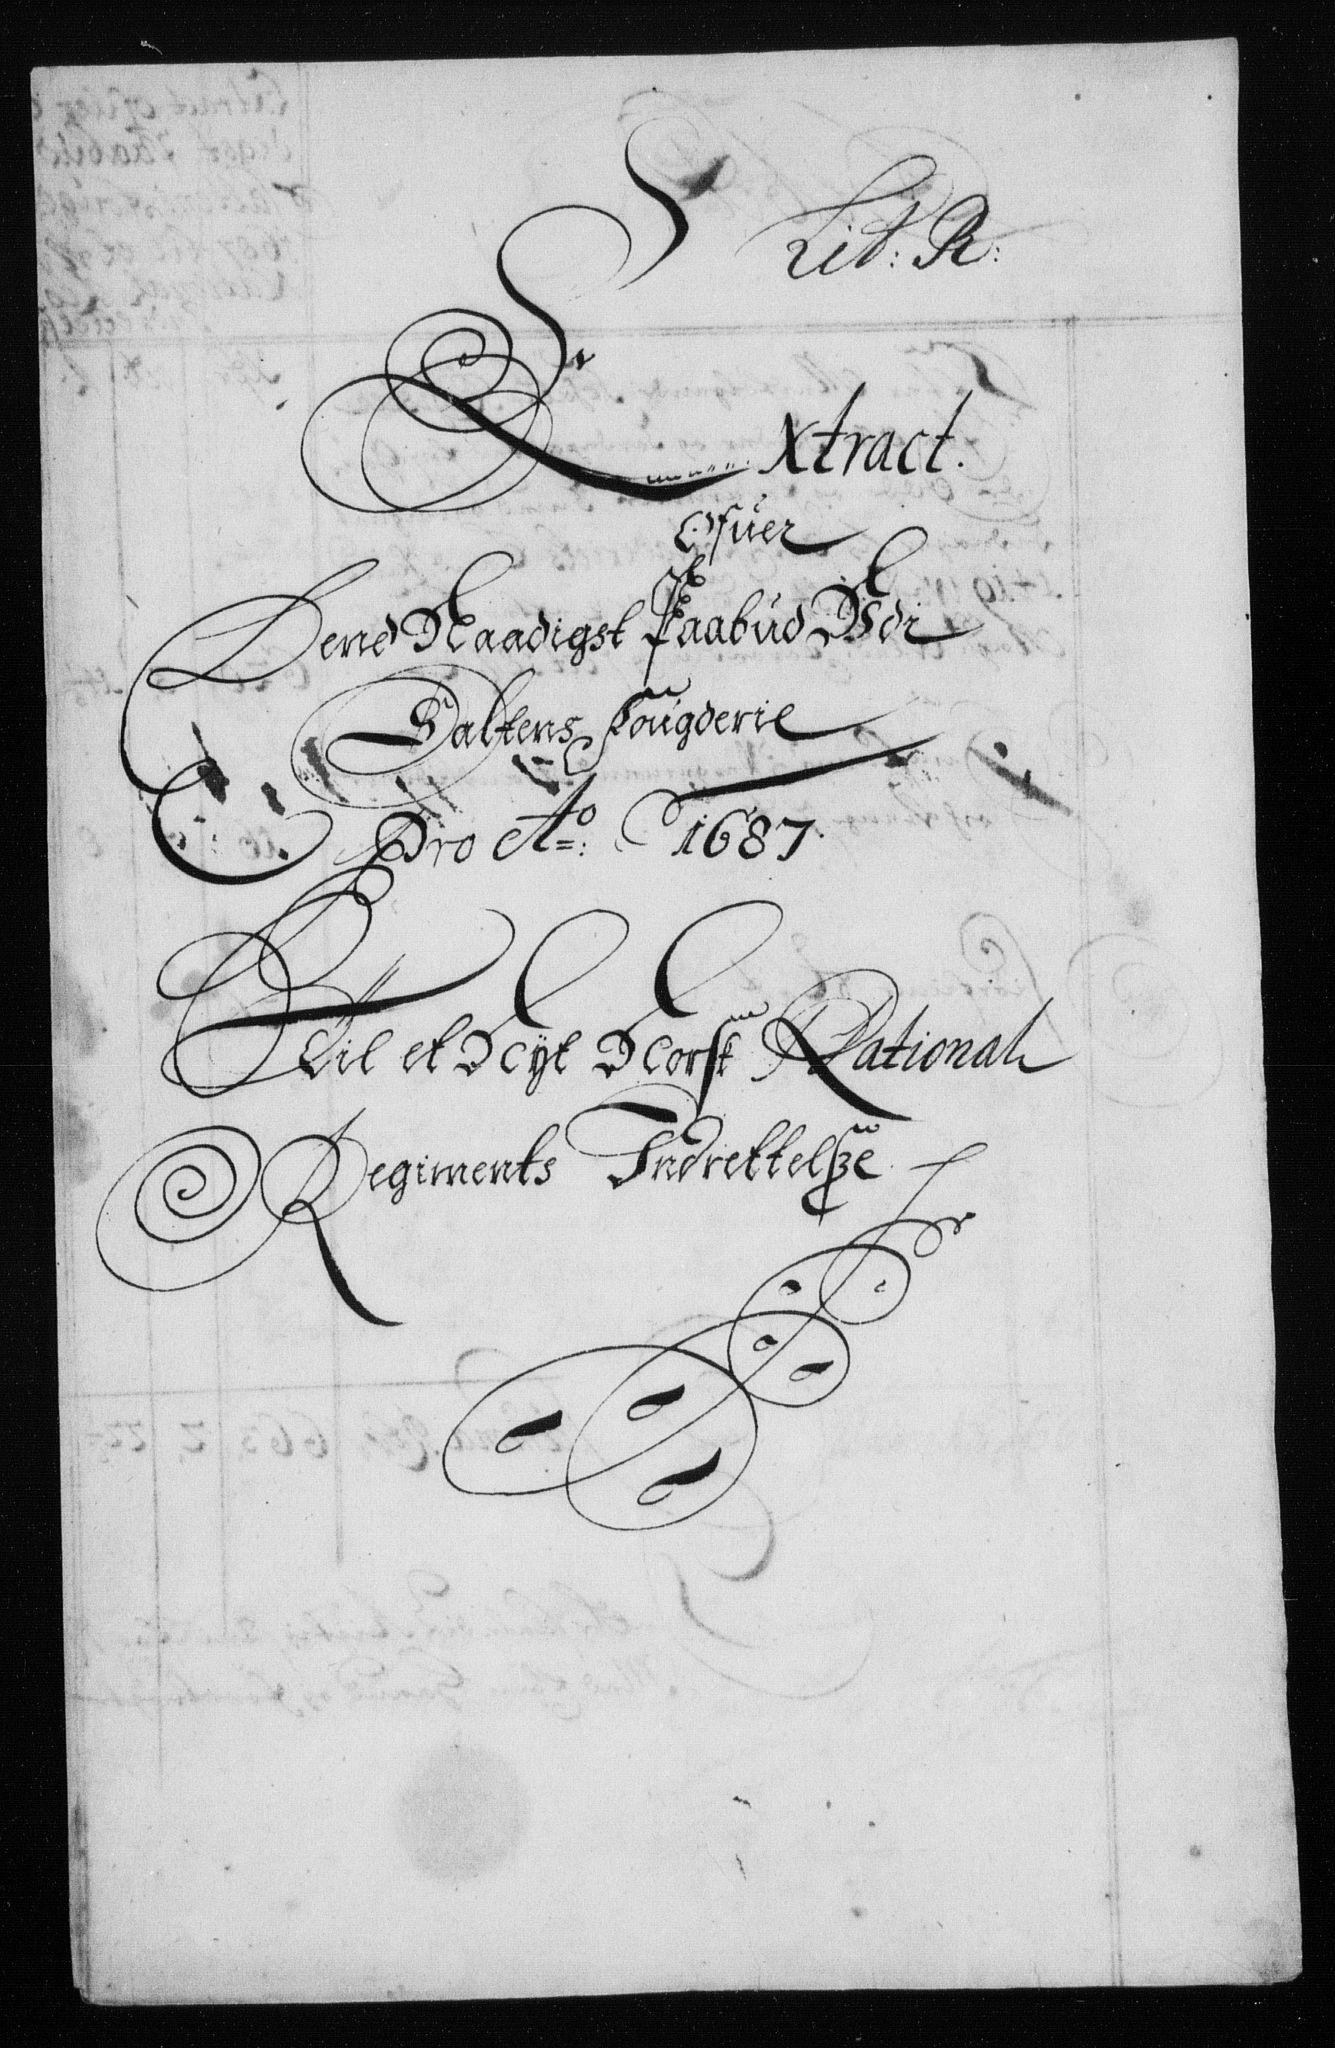 Lit: R:
Extract.
Ofuer
Dend Naadigst Paabud Udi
Saltens Fougderie
Pro Ao: 1687.
Til et Nyt Norsk National
Regiments Indrettelsse